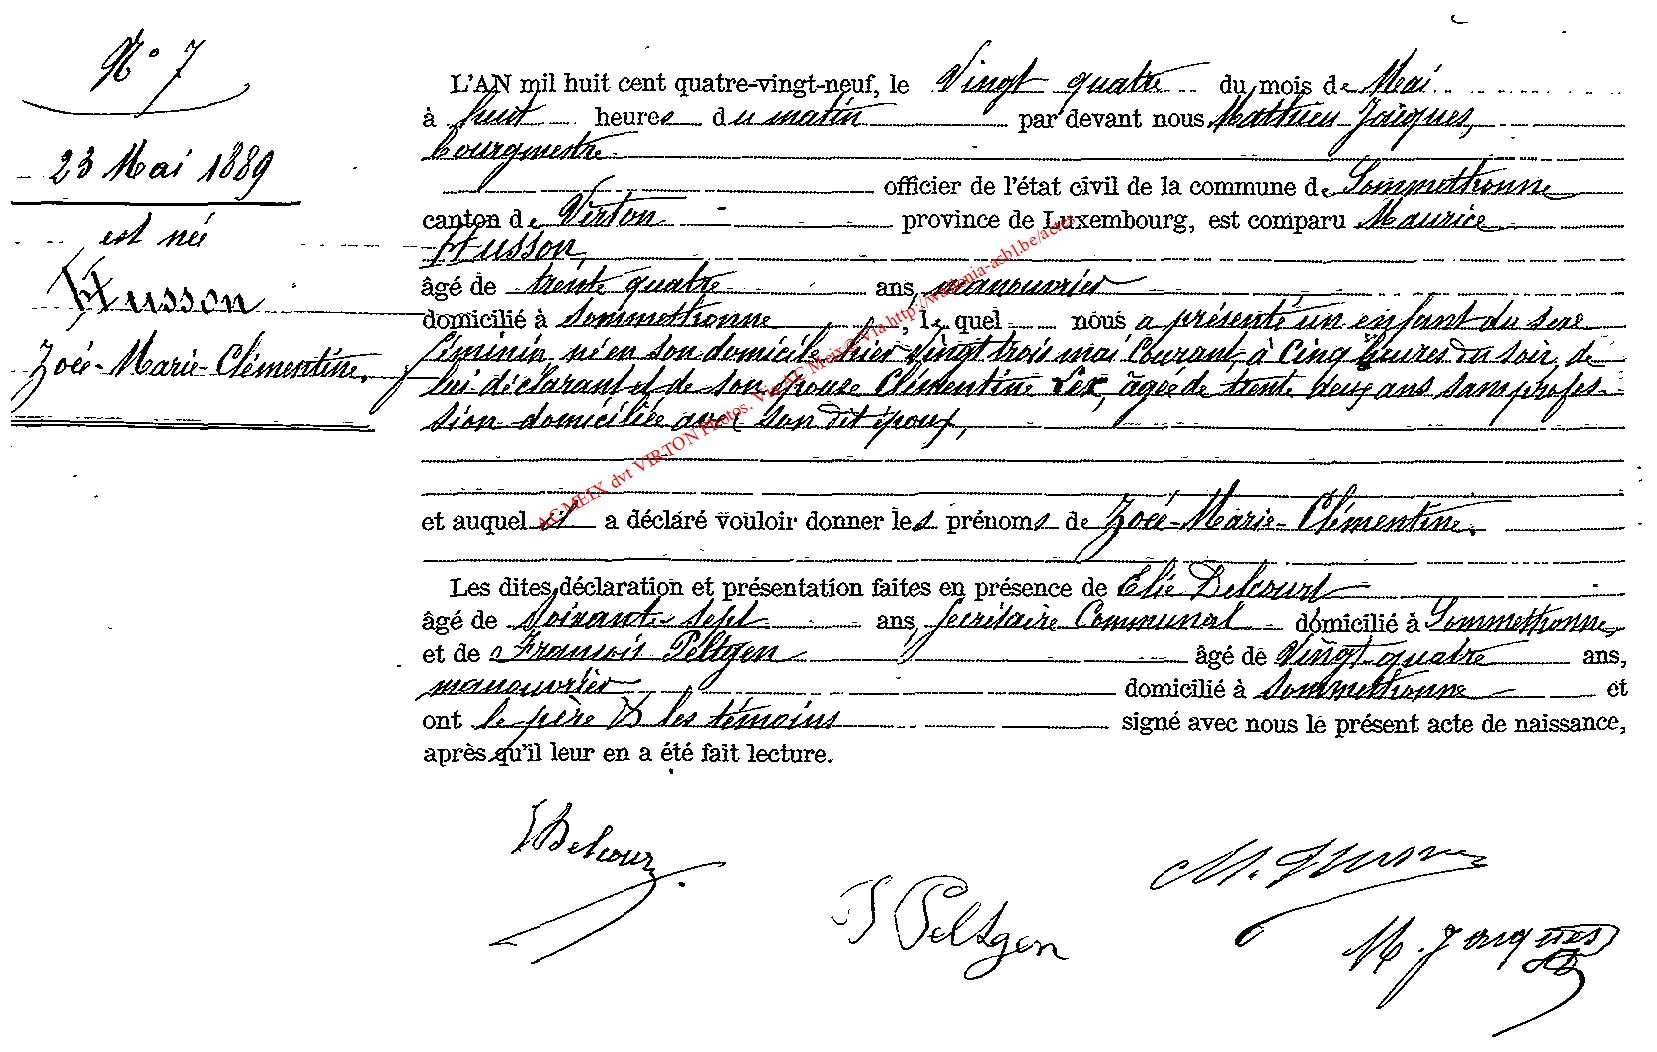 N° 7
23 Mai 1889
est née
Husson
Zoée-Marie-Clémentine.
L'AN mil huit cent quatre-vingt-neuf, le Vingt quatre du mois de Mai
à huit heures du matin par devant nous Mathieu Jacques,
bourgmestre
officier de l'état civil de la commune de Sommethonne
canton de Virton province de Luxembourg, est comparu Maurice
Husson,
âgé de trente quatre ans, manouvrier
domicilié à Sommethonne, le quel nous a présenté un enfant du sexe
féminin, né en son domicile hier vingt trois mai courant, à cinq heures du soir, de
lui déclarant, et de son épouse Clémentine Lex, âgée de trente deux ans sans profes-
sion domiciliée avec son dit époux,
et auquel il a déclaré vouloir donner les prénoms de Zoée-Marie-Clémentine.
Les dites déclaration et présentation faites en présence de Elie Delcourt
âgé de soixante sept ans, secrétaire Communal domicilié à Sommethonne,
et de François Peltgen âgé de vingt quatre ans,
manouvrier domicilié à Sommethonne et
ont le père & les témoins signé avec nous le présent acte de naissance,
après qu'il leur en a été fait lecture.
E Delcour
M. Husson
F Peltgen
M. Jacques
AG MEIX dvt VIRTON Photos. Via AC Meix & Via http://wallonia-asbl.be/actes